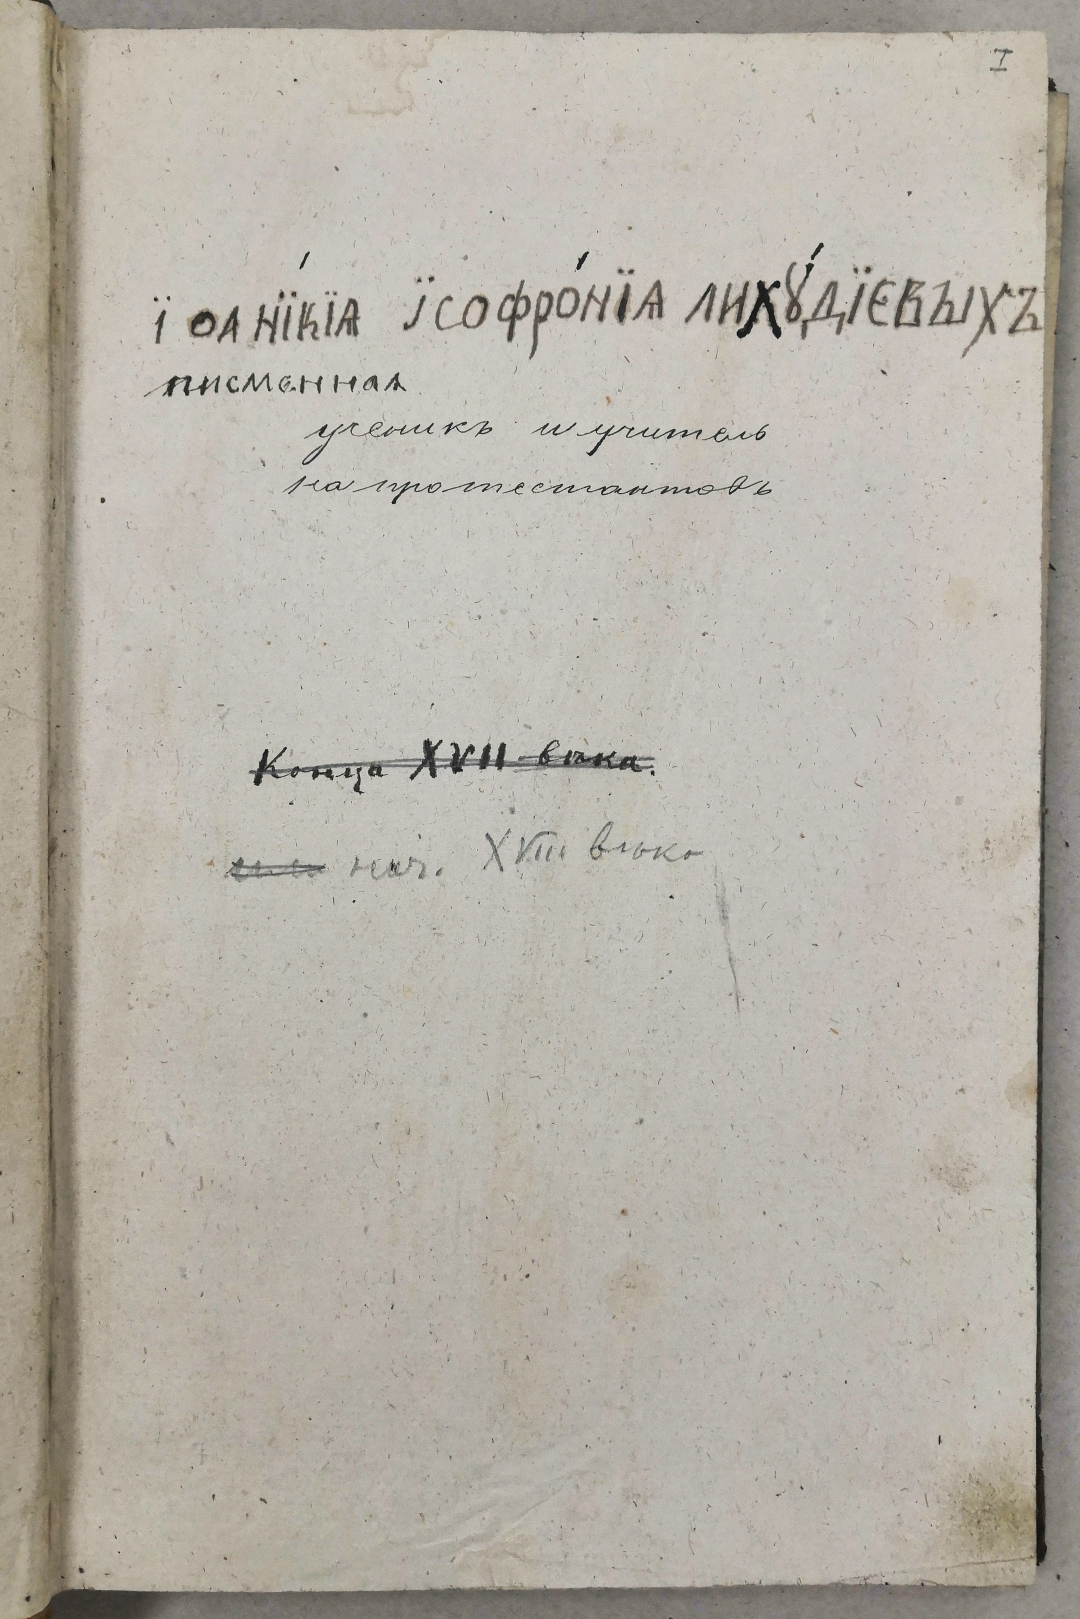 I
Ї ОАНЇКЇѦ ЇСОФРО́НЇѦ ЛИХꙊ́ДЇЕВЫХЪ
писменная
ученикъ и учитель
на протестантовъ
Конца XVII вѣка.
или нач. XVIII вѣка